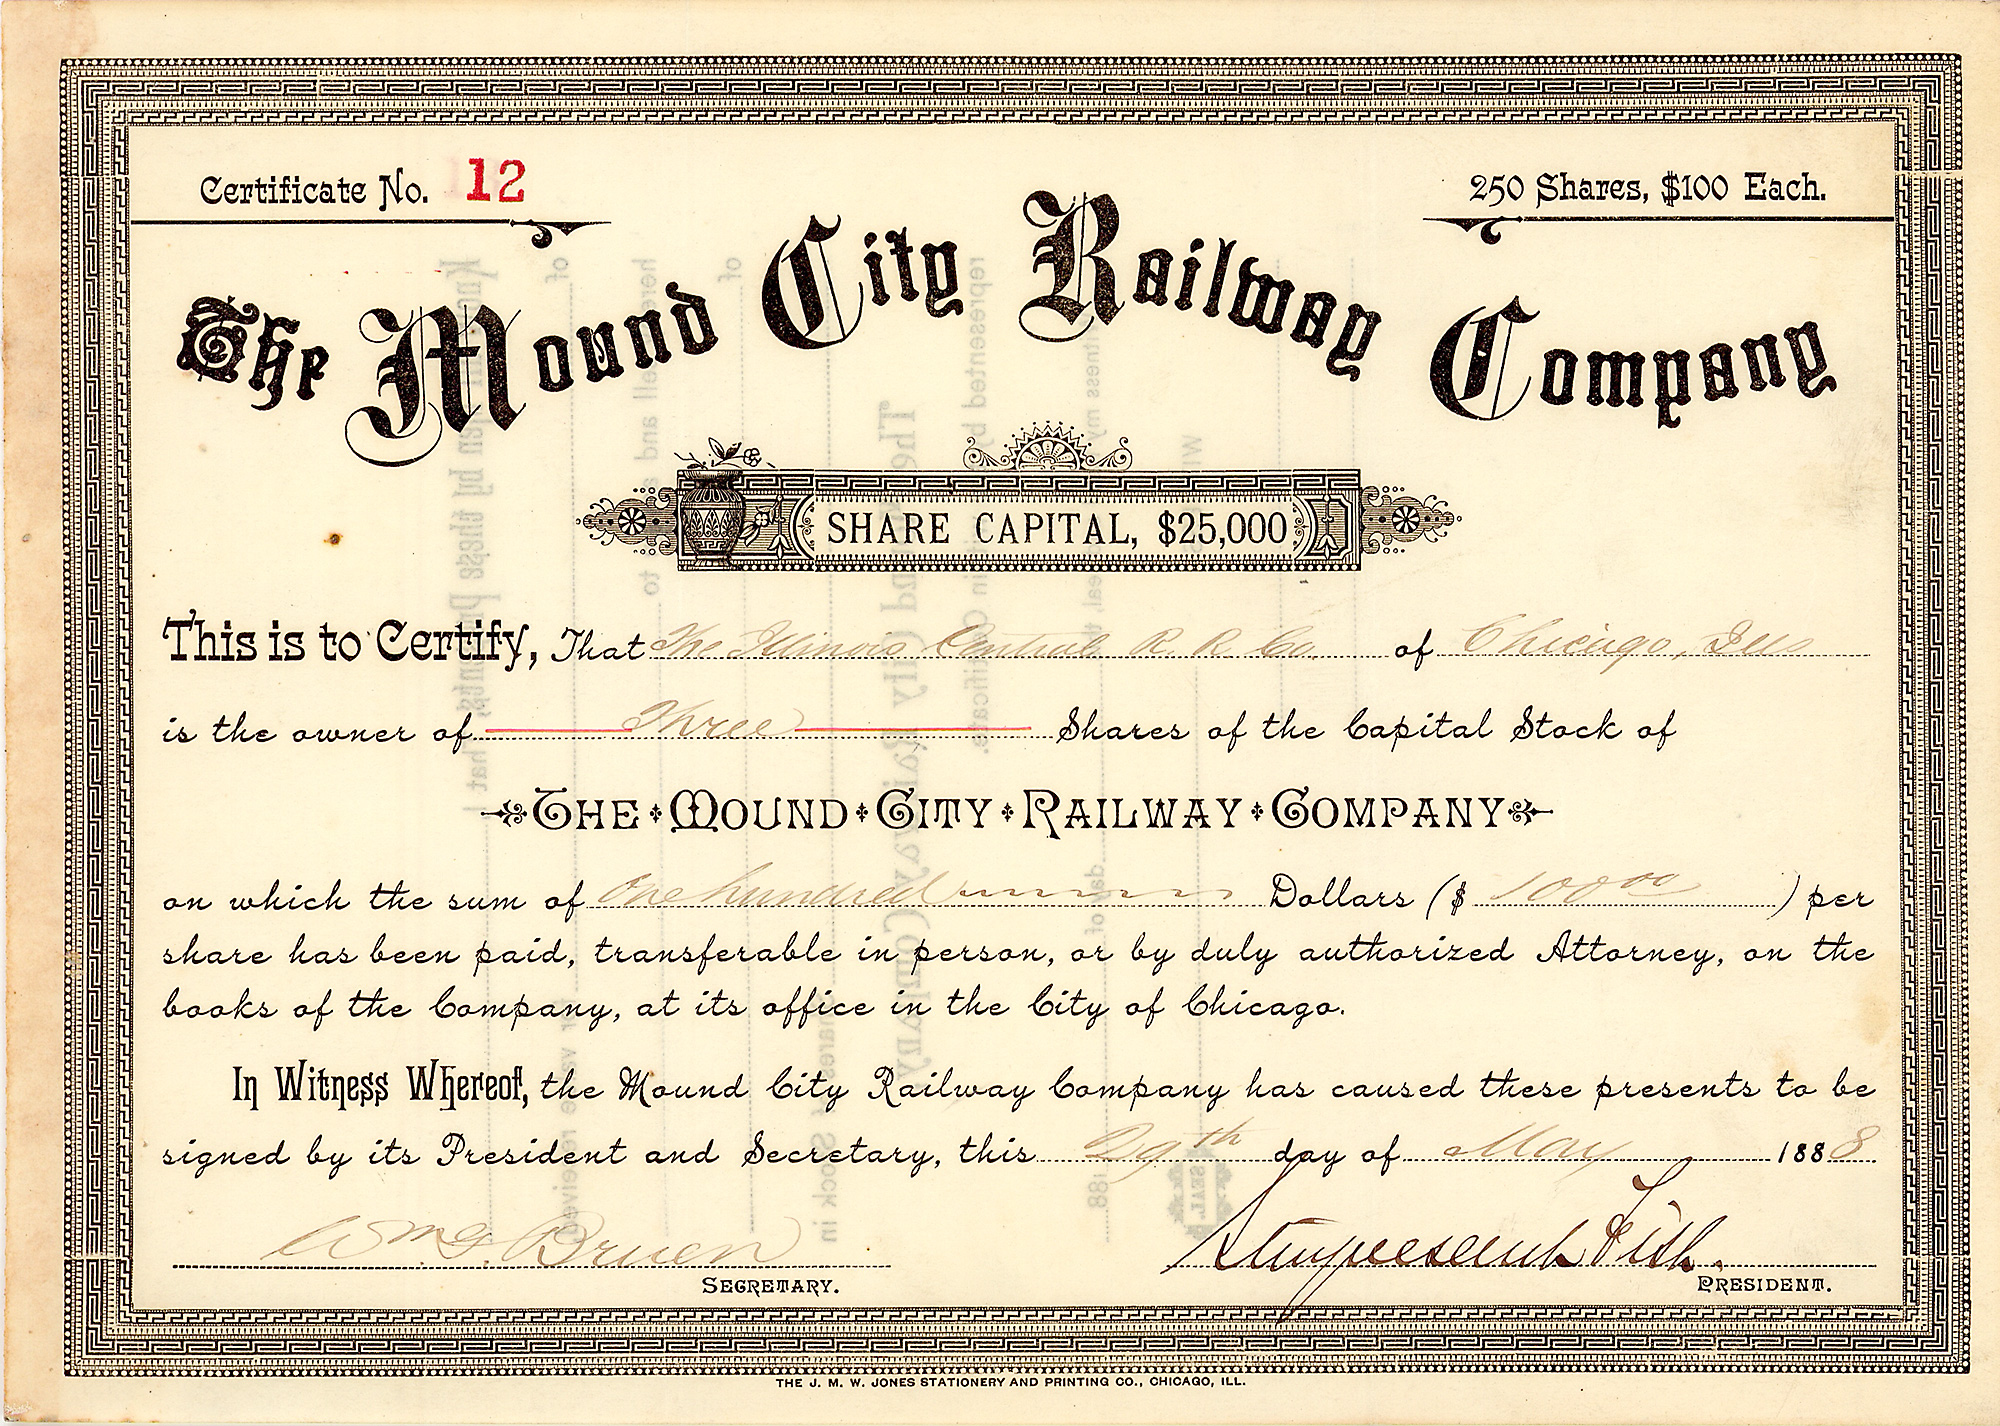 Certificate No. 12
250 Shares, $100 Each.
The Mound City Railway Company
SHARE CAPITAL, $25,000
This is to Certify, That The Illinois Central R. R. Co. of Chicago, Ills
is the owner of Three Shares of the Capital Stock of
THE MOUND CITY RAILWAY COMPANY
on which the sum of One hundred Dollars ($ 100 00 ) per
share has been paid, transferable in person, or by duly authorized Attorney, on the
books of the Company, at its office in the City of Chicago.
In Witness Whereof, the Mound City Railway Company has caused these presents to be
signed by its President and Secretary, this 29th day of May 1888
Wm G. Bruen
Stuyvesant Fish.
SECRETARY.
PRESIDENT.
THE J. M. W. JONES STATIONERY AND PRINTING CO., CHICAGO, ILL.